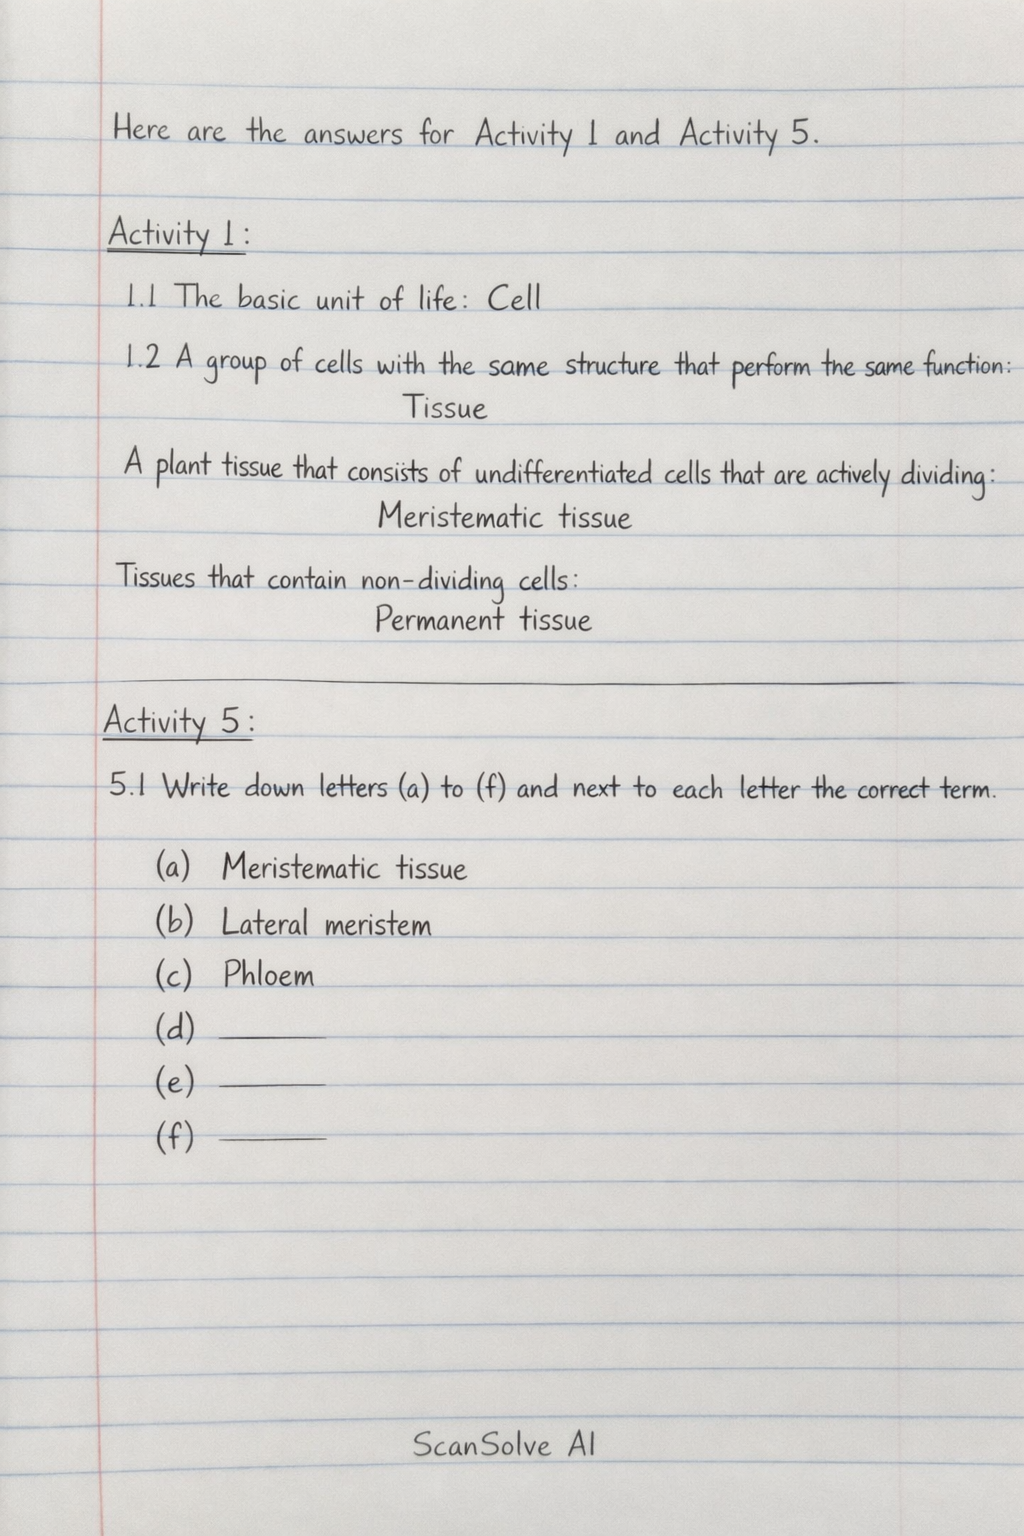 Here are the answers for Activity 1 and Activity 5.
Activity 1:
1.1 The basic unit of life: Cell
1.2 A group of cells with the same structure that perform the same function:
Tissue
A plant tissue that consists of undifferentiated cells that are actively dividing:
Meristematic tissue
Tissues that contain non-dividing cells:
Permanent tissue
Activity 5:
5.1 Write down letters (a) to (f) and next to each letter the correct term.
(a) Meristematic tissue
(b) Lateral meristem
(c) Phloem
(d) ______
(e) ______
(f) ______
ScanSolve AI